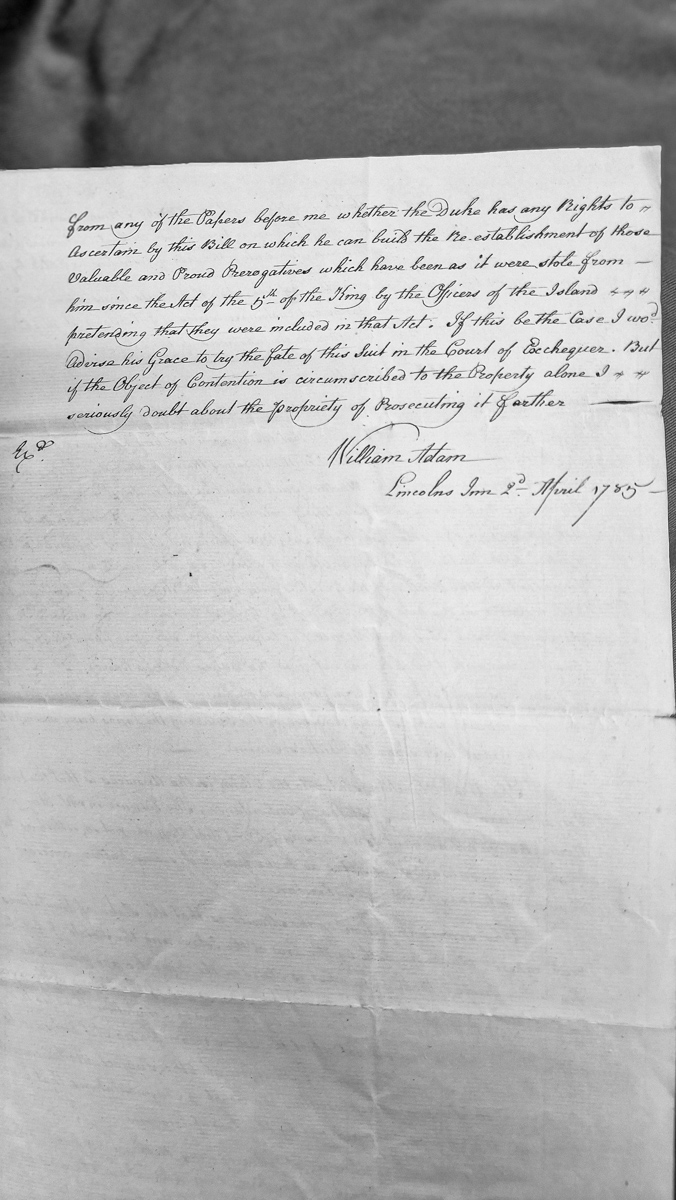 from any of the Papers before me whether the Duke has any Rights to
Ascertain by this Bill on which he can built the Re-establishment of those
Valuable and Proud Prerogatives which have been as it were stole from —
him since the Act of the 5th of the King by the Officers of the Island
pretending that they were included in that Act. If this be the Case I wod.
Advise his Grace to try the fate of this Suit in the Court of Exchequer. But
if the Object of Contention is circumscribed to the Property alone I
seriously doubt about the propriety of Prosecuting it farther —
Exd.
William Adam
Lincolns Inn 2d April 1785 —